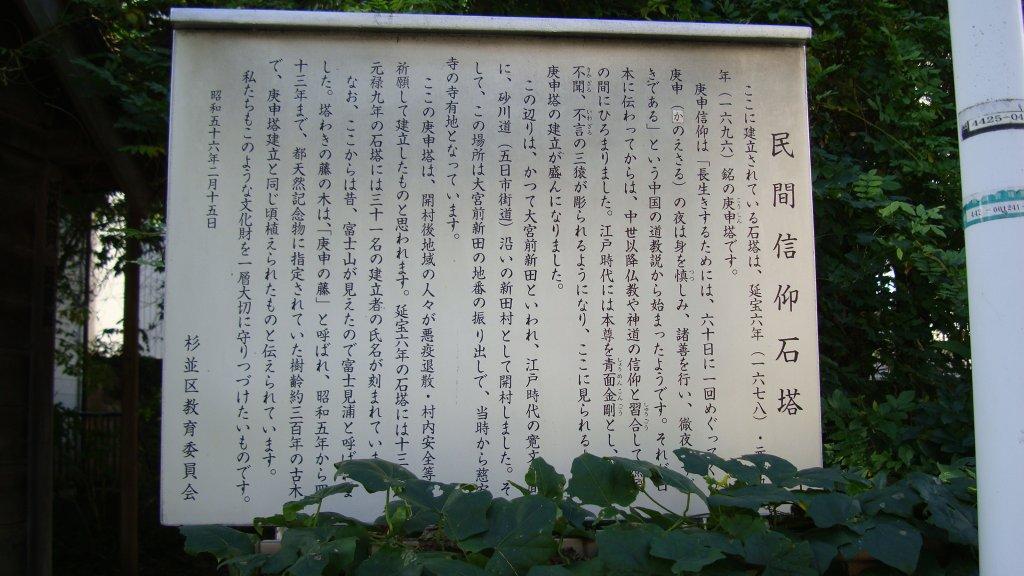 民間信仰石塔
ここに建立されている石塔は、延宝六年(一六七八)・元
年(一六九六)銘の庚申塔です。
庚申信仰は「長生きするためには、六十日に一回めぐって
庚申(かのえさる)の夜は身を慎しみ、諸善を行い、徹夜
きである」という中国の道教説から始まったようです。それが日
本に伝わってからは、中世以降仏教や神道の信仰と習合して
の間にひろまりました。江戸時代には本尊を青面金剛とし、
不聞、不言の三猿が彫られるようになり、ここに見られる
庚申塔の建立が盛んになりました。
この辺りは、かつて大宮前新田といわれ、江戸時代の寛文
に、砂川道(五日市街道)沿いの新田村として開村しました。そ
して、この場所は大宮前新田の地番の振り出しで、当時から慈宏
寺の寺有地となっています。
ここの庚申塔は、開村後地域の人々が悪疫退散・村内安全等
祈願して建立したものと思われます。延宝六年の石塔には十三
元禄九年の石塔には三十一名の建立者の氏名が刻まれていま
なお、ここからは昔、富士山が見えたので富士見浦と呼ば
した。塔わきの藤の木は、「庚申の藤」と呼ばれ、昭和五年から四
十三年まで、都天然記念物に指定されていた樹齢約三百年の古木
で、庚申塔建立と同じ頃植えられたものと伝えられています。
私たちもこのような文化財を一層大切に守りつづけたいものです。
昭和五十六年二月十五日
杉並区教育委員会
4425-04
442-001241-